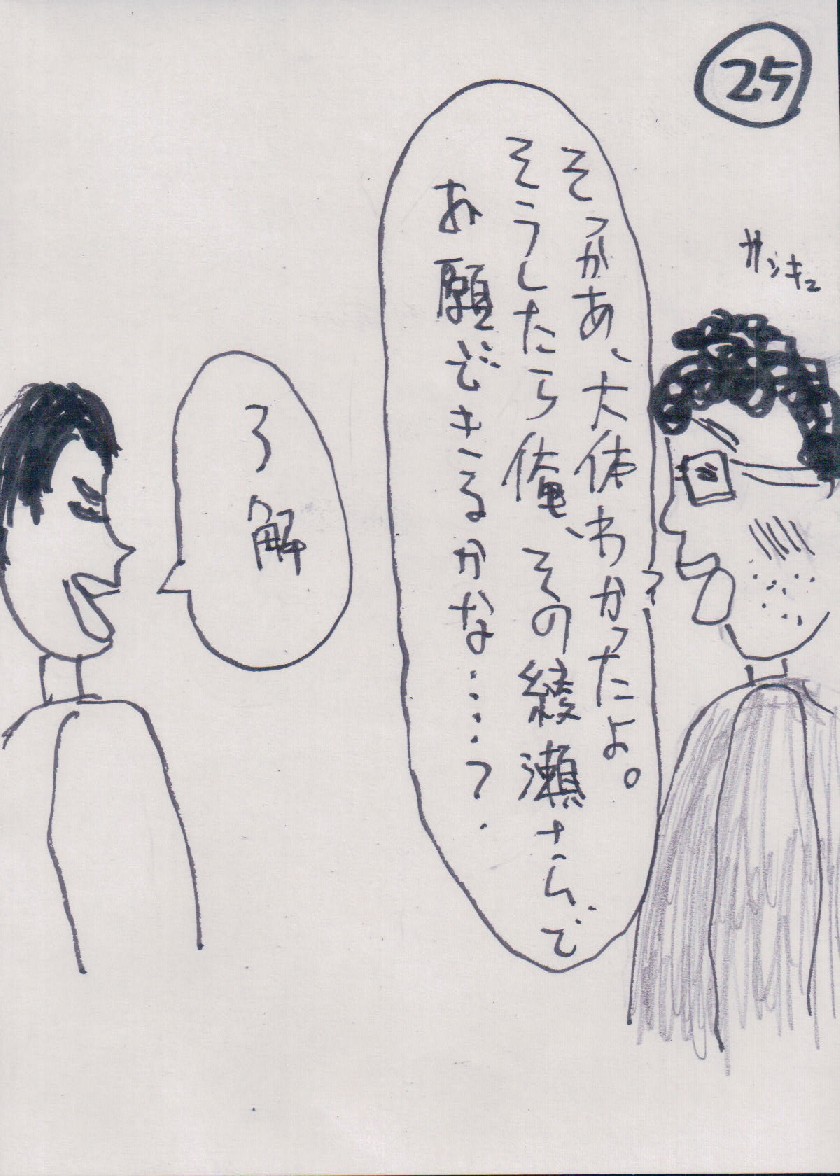 25
サンキュ
そっかあ、大体わかったよ。
そうしたら俺、その綾瀬さんで
お願いできるかな……？
了解